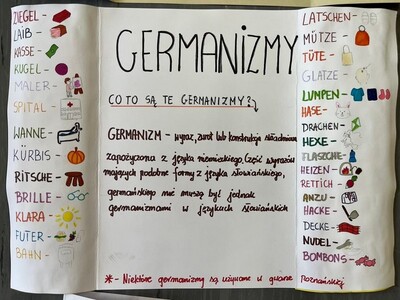 ZIEGEL -
LAIB -
KASSE -
KUGEL -
MALER -
SPITAL -
WANNE -
KÜRBIS -
RITSCHE -
BRILLE -
KLARA -
FUTER -
BAHN -
GERMANIZMY
CO TO SĄ TE GERMANIZMY?
GERMANIZM - wyraz, zwrot lub konstrukcja składniowa
zapożyczona z języka niemieckiego. Część wyrazów
mających podobne formy z języka słowiańskiego,
germańskiego nie muszą być jednak
germanizmami w językach słowiańskich
* - Niektóre germanizmy są używane w gwarze poznańskiej
LATSCHEN -
MÜTZE -
TÜTE -
GLATZE -
LUMPEN -
HASE -
DRACHEN -
HEXE -
FLASCHE -
HEIZEN -
RETTICH -
ANZU -
HACKE -
DECKE -
NUDEL -
BOMBONS -